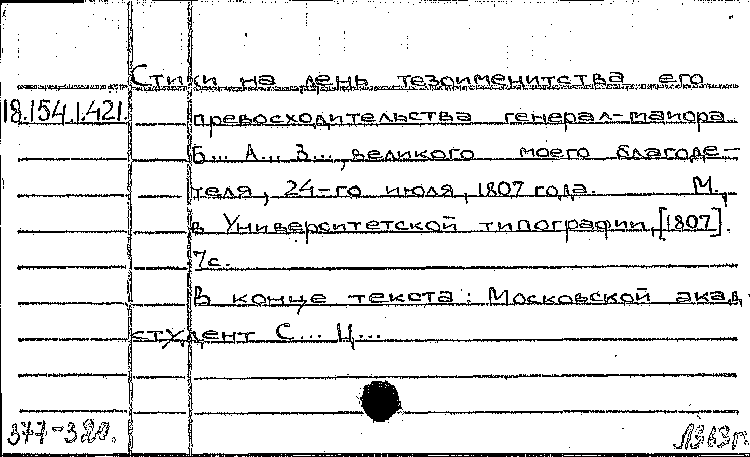 Стихи на день тезоименитства его
18.154.1.421. превосходительства генерал-маиора
Б... А... З..., великого моего благоде-
теля, 24-го июля, 1807 года. М.,
в Университетской типографии, [1807].
7с.
В конце текста: Московской акад.
студент С... Ц...
377-320. 1963г.